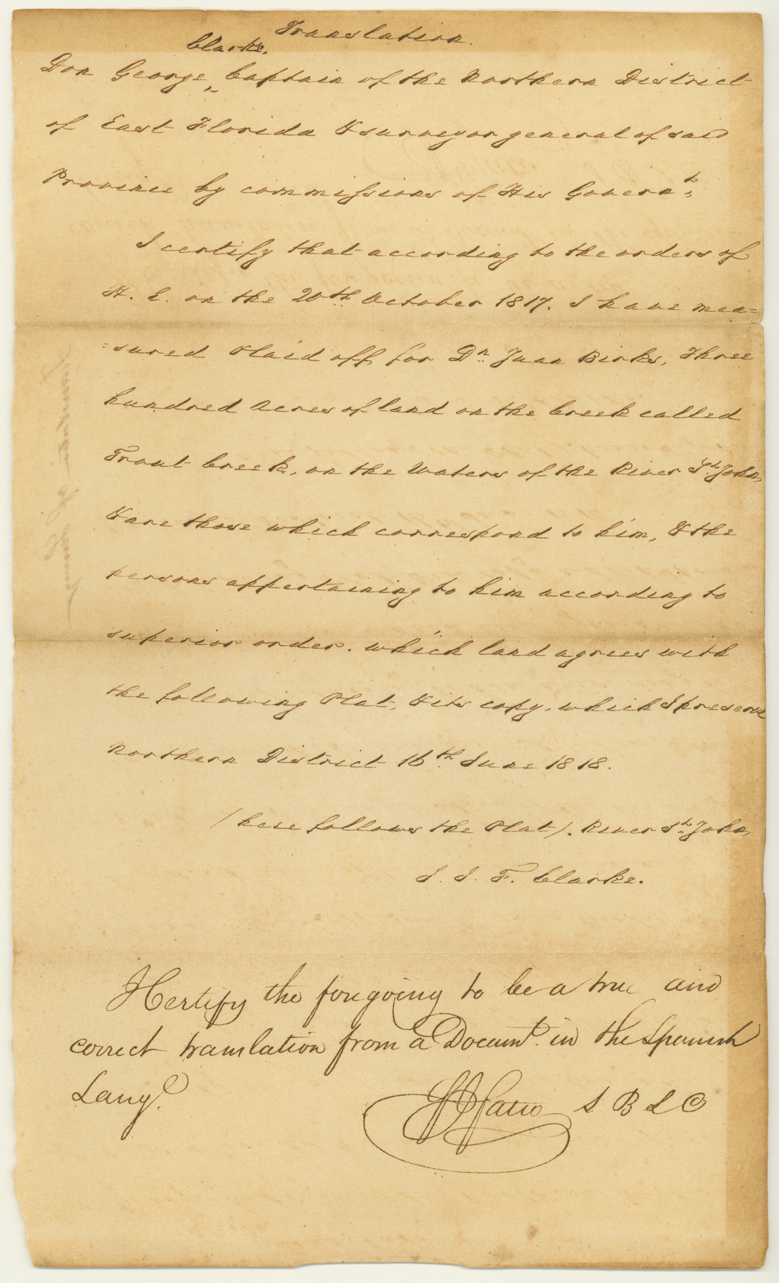 Translation.
Clarke.
Don George ‸ Captain of the Northern District
of East Florida & surveyor general of said
Province by commissions of His Governt.
I certify that according to the orders of
H. E. on the 20th October 1817. I have mea=
=sured & laid off for Dn. Juan Birks, Three
hundred Acres of land on the Creek called
Trout Creek, on the Waters of the River St. John,
& are those which correspond to him, & the
persons appertaining to him according to
superior order. which land agrees with
the following Plat, & its copy, which I preserve
Northern District 16th June 1818.
(here follows the Plat). River St. John,
Clarke.
I Certify the foregoing to be a true and
correct translation from a Documt. in the Spanish
Lange.
S B L C